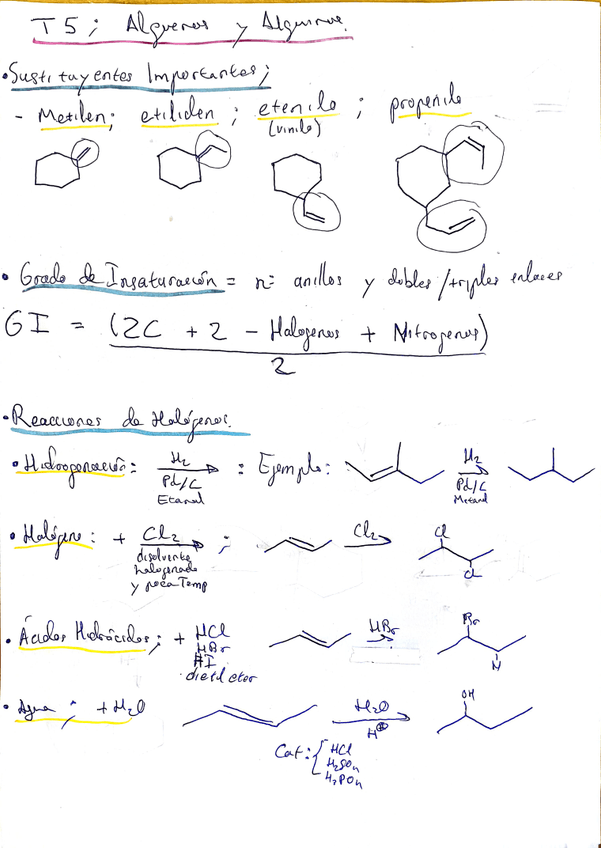 T5; Alquenos y Alquinos.
• Sustituyentes Importantes;
- Metilen; etiliden; etenilo; propenilo
(vinilo)
• Grado de Insaturación = nº anillos y dobles/triples enlaces
GI = (2C + 2 - Halogenos + Nitrogenos)
2
• Reacciones de Halógenos.
• Hidrogenación: H₂ : Ejemplo: H₂
Pd/C Pd/C
Etanol Metanol
• Halógeno: + Cl₂ ; Cl₂ Cl
disolvente Cl
halogenado
y poca Temp
• Ácidos Hidrácidos; + HCl HBr Br
HBr H
HI
dietileter
• Agua; + H₂O H₂O OH
H⊕
Cat: { HCl
H₂SO₄
H₃PO₄